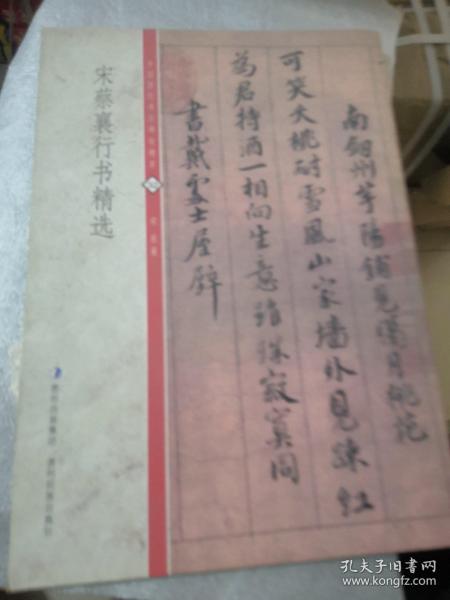 宋蔡襄行书精选
南劒州芋陽鋪見臘月桃花
可笑夭桃耐雪風山家墻外見疎紅
為君持酒一相向生意雖殊寂寞同
書戴處士屋壁
孔夫子旧书网
www.kongfz.com